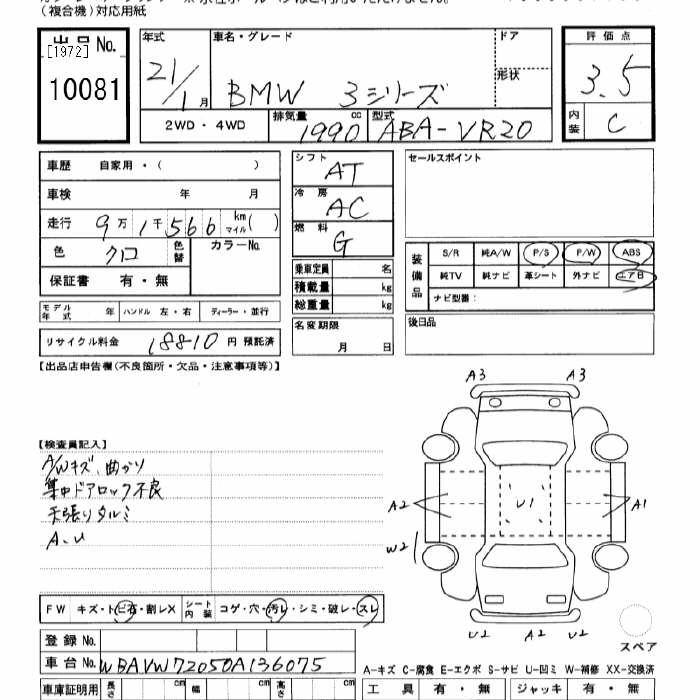 (複合機)対応用紙
出品 No.
[1972]
10081
年式
21/1 月
車名・グレード
BMW 3シリーズ
ドア
形状
評価点
3.5
内装 C
2WD・4WD
排気量 1990 cc
型式 ABA-VR20
車歴 自家用・( )
車検 年 月
走行 9万1千566 km マイル( )
色 クロ 色替 カラーNo.
保証書 有・無
モデル年式 年 ハンドル 左・右 ディーラー・並行
リサイクル料金 18810 円 預託済
シフト AT
冷房 AC
燃料 G
乗車定員 名
積載量 kg
総重量 kg
名変期限
月 日
セールスポイント
装備品
S/R 純A/W P/S P/W ABS
純TV 純ナビ 革シート 外ナビ エアB
ナビ型番:
後日品
【出品店申告欄(不良箇所・欠品・注意事項等)】
【検査員記入】
A/Wキズ、曲がり
集中ドアロック不良
天張りタルミ
A、U
A3 A3
A2 U1 A1
W2
U2 A2 U2
スペア
FW キズ・トビ石・割レX シート内装 コゲ・穴・汚レ・シミ・破レ・スレ
登録 No.
車台 No. WBAVW72050A136075
A-キズ C-腐食 E-エクボ S-サビ U-凹ミ W-補修 XX-交換済
車庫証明用 長さ cm 幅 cm 高さ cm
工具 有・無 ジャッキ 有・無